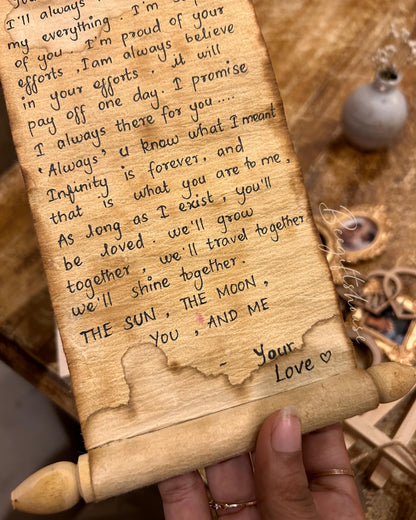 I'll always
my everything. I'm
of you. I'm proud of your
efforts, I am always believe
in your efforts, it will
pay off one day. I promise
I always there for you....
'Always' u know what I meant
Infinity is forever, and
that is what you are to me,
As long as I exist, you'll
be loved. we'll grow
together, we'll travel together
we'll shine together.
THE SUN, THE MOON,
YOU, AND ME
- Your
Love ♡